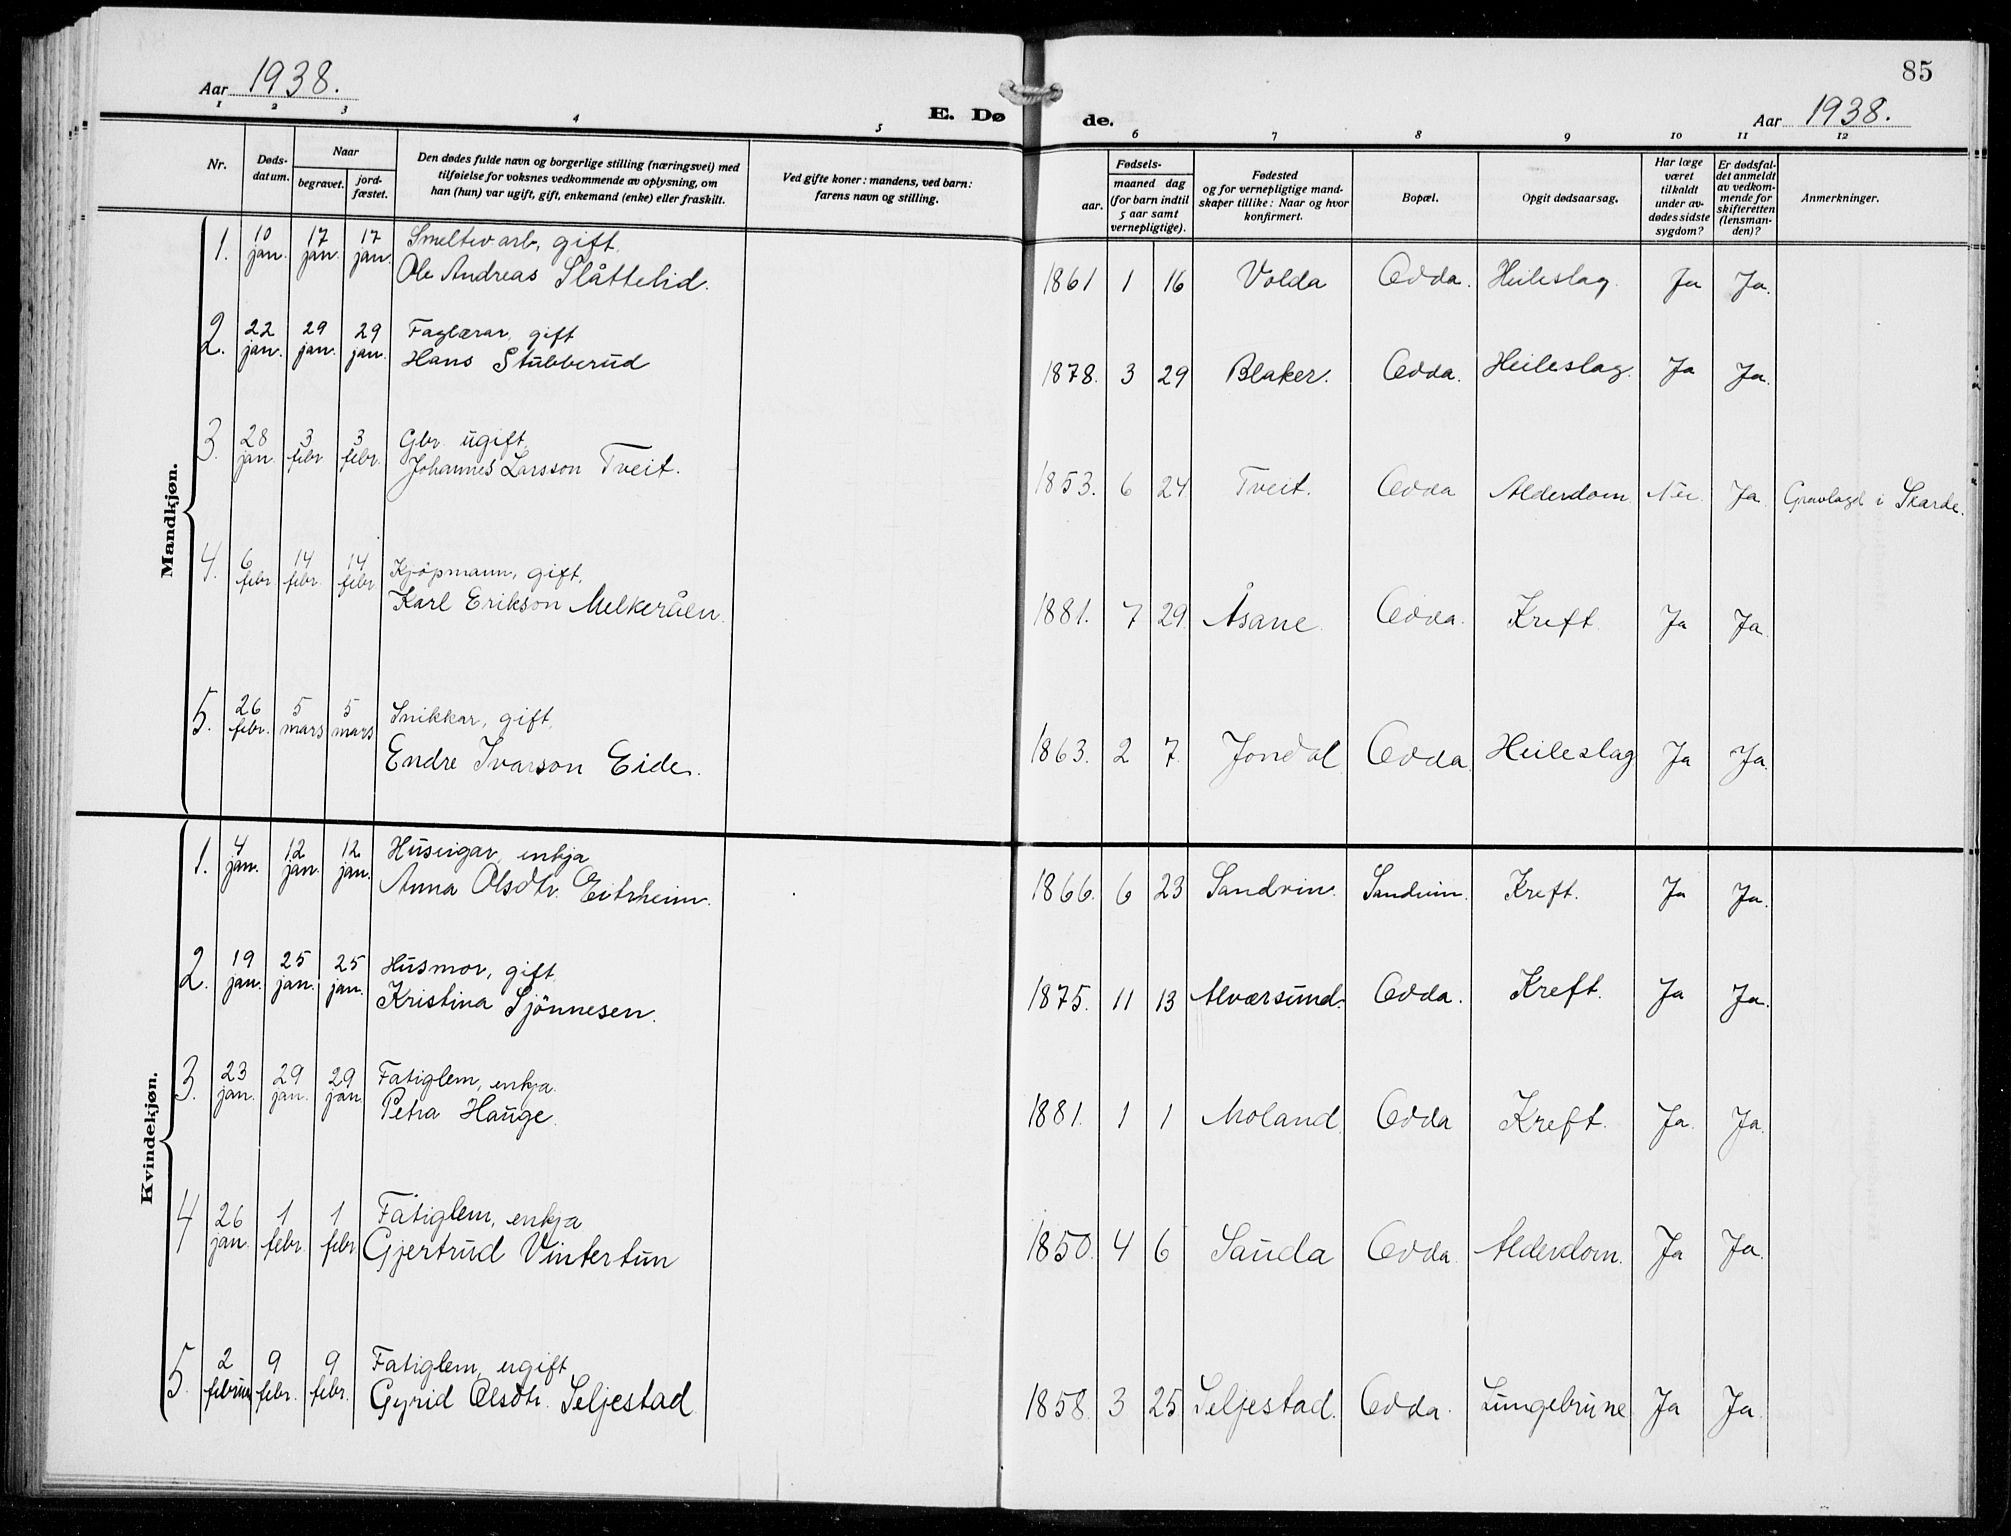 85
Aar 1938.
Aar 1938.
E. Dø
de.
1 2 3 4 5 6 7 8 9 10 11 12
Nr.
Døds-
datum.
Naar
begravet.
jord-
fæstet.
Den dødes fulde navn og borgerlige stilling (næringsvei) med
tilføielse for voksnes vedkommende av oplysning, om
han (hun) var ugift, gift, enkemand (enke) eller fraskilt.
Ved gifte koner: mandens, ved barn:
farens navn og stilling.
Fødsels-
aar.
maaned dag
(for barn indtil
5 aar samt
vernepligtige).
Fødested
og for vernepligtige mand-
skaper tillike: Naar og hvor
konfirmert.
Bopæl.
Opgit dødsaarsag.
Har læge
været
tilkaldt
under av-
dødes sidste
sygdom?
Er dødsfal-
det anmeldt
av vedkom-
mende for
skifteretten
(lensman-
den)?
Anmerkninger.
Mandkjøn.
1. 10 jan. 17 jan. 17 jan. Smeltev. arb, gift.
Ole Andreas Slåttelid. 1861 1 16 Volda Odda. Heileslag. Ja Ja.
2. 22 jan. 29 jan. 29 jan. Faglærar, gift
Hans Stubberud 1878. 3 29 Blaker. Odda. Heileslag. Ja Ja.
3. 28 jan. 3 febr 3 febr. Gbr. ugift.
Johannes Larsson Tveit. 1853. 6 24 Tveit. Odda Alderdom Nei. Ja Gravlagd i Skarde.
4. 6 febr 14 febr. 14 febr Kjøpmann, gift,
Karl Erikson Melkeråen. 1881. 7 29. Åsane. Odda. Kreft. Ja Ja.
5. 26 febr. 5 mars 5 mars Snikkar, gift,
Endre Ivarson Eide. 1863. 2 7. Jondal Odda. Heileslag Ja Ja.
Kvindekjøn.
1. 4 jan. 12 jan. 12 jan. Huseigar, enkja
Anna Olsdtr. Eitrheim. 1866. 6 23 Sandvin. Sandvin. Kreft. Ja Ja.
2. 19 jan. 25 jan. 25 jan. Husmor, gift.
Kristina Sjönnesen. 1875. 11 13 Alværsund. Odda. Kreft. Ja Ja.
3. 23 jan. 29 jan. 29 jan. Fatiglem, enkja.
Petra Hauge. 1881. 1 1 Moland. Odda Kreft. Ja. Ja.
4 26 jan. 1 febr. 1 febr Fatiglem, enkja
Gjertrud Vintertun 1850. 4 6 Sauda Odda. Alderdom. Ja Ja.
5. 2 februar 9 febr. 9 febr. Fatiglem, ugift,
Gyrid Olsdtr. Seljestad. 1858. 3 25 Seljestad. Odda. Lungebrune. Ja Ja.